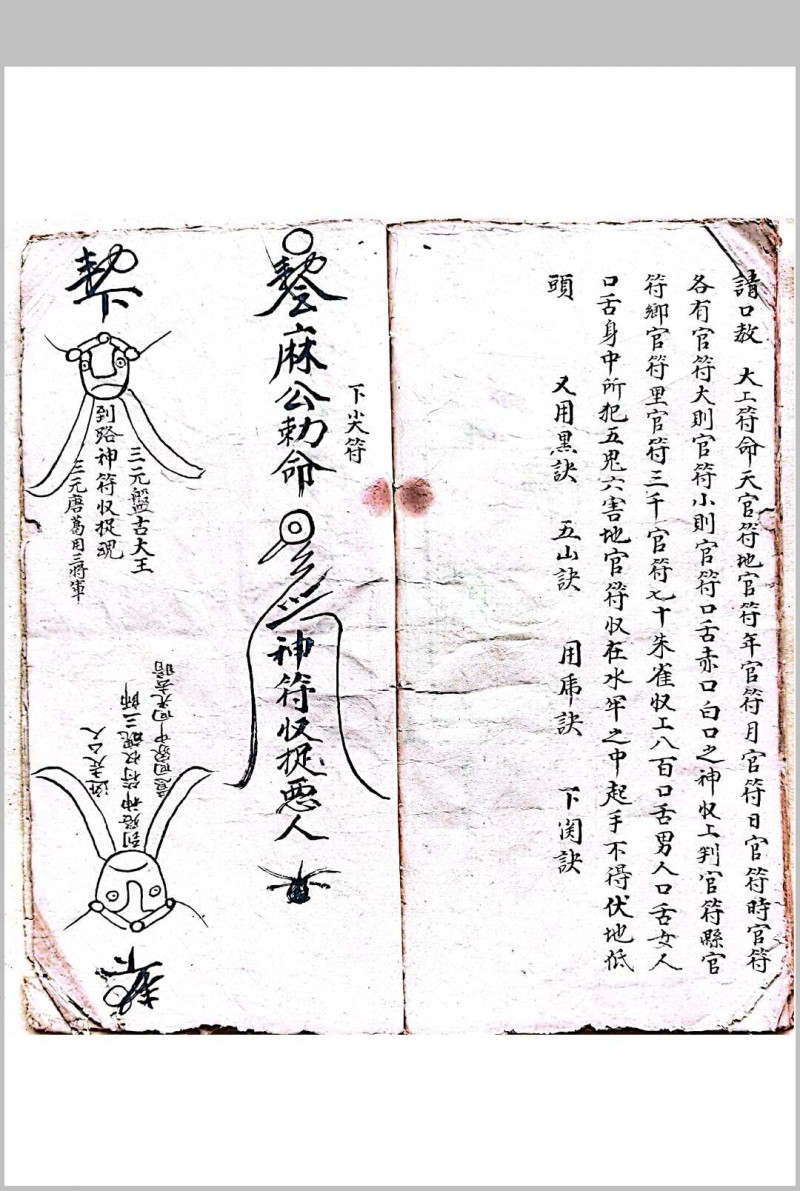 請口教 大上符命天官符地官符年官符月官符日官符時官符
各有官符大則官符小則官符口舌赤口白口之神収上判官符縣官
符鄉官符里官符三千官符七十朱雀収上八百口舌男人口舌女人
口舌身中所犯五鬼六害地官符収在水牢之中起手不得伏地低
頭 又用黑訣 五山訣 用席訣 下関訣
下尖符
麻公勅命
神符収捉惡人
三元盤古大王
到路神符収捉魂
三元唐葛周三將軍
到路神符収魂三師